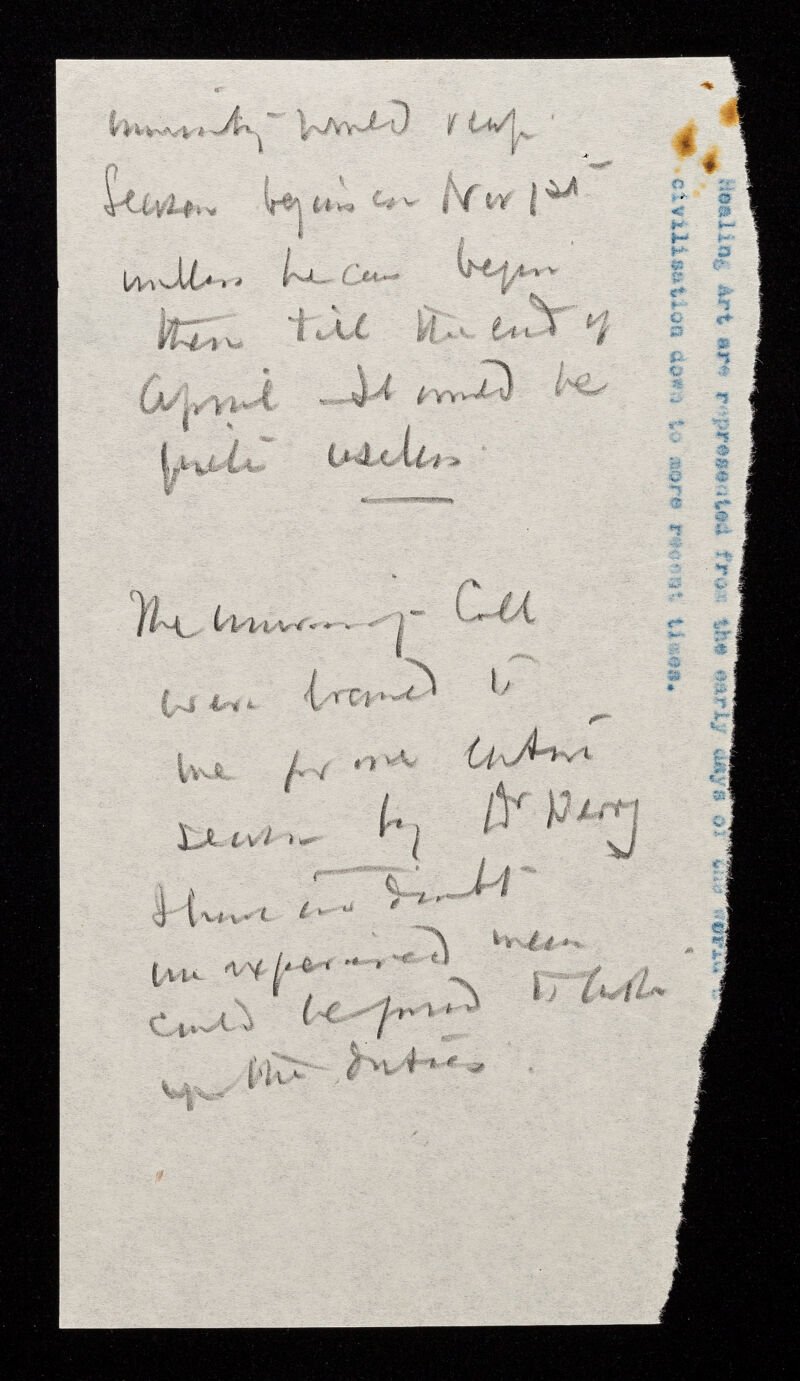 would reap
Season begins on Nov 1st
unless he can begin
then till the end of
April - It would be
quite useless.
The Coll
were loaned to
me for one entire
season by Dr Derry
I have no doubt
an experienced man
could be found to take
up the duties.
Healing Art are represented from the early days of the world's
civilisation down to more recent times.